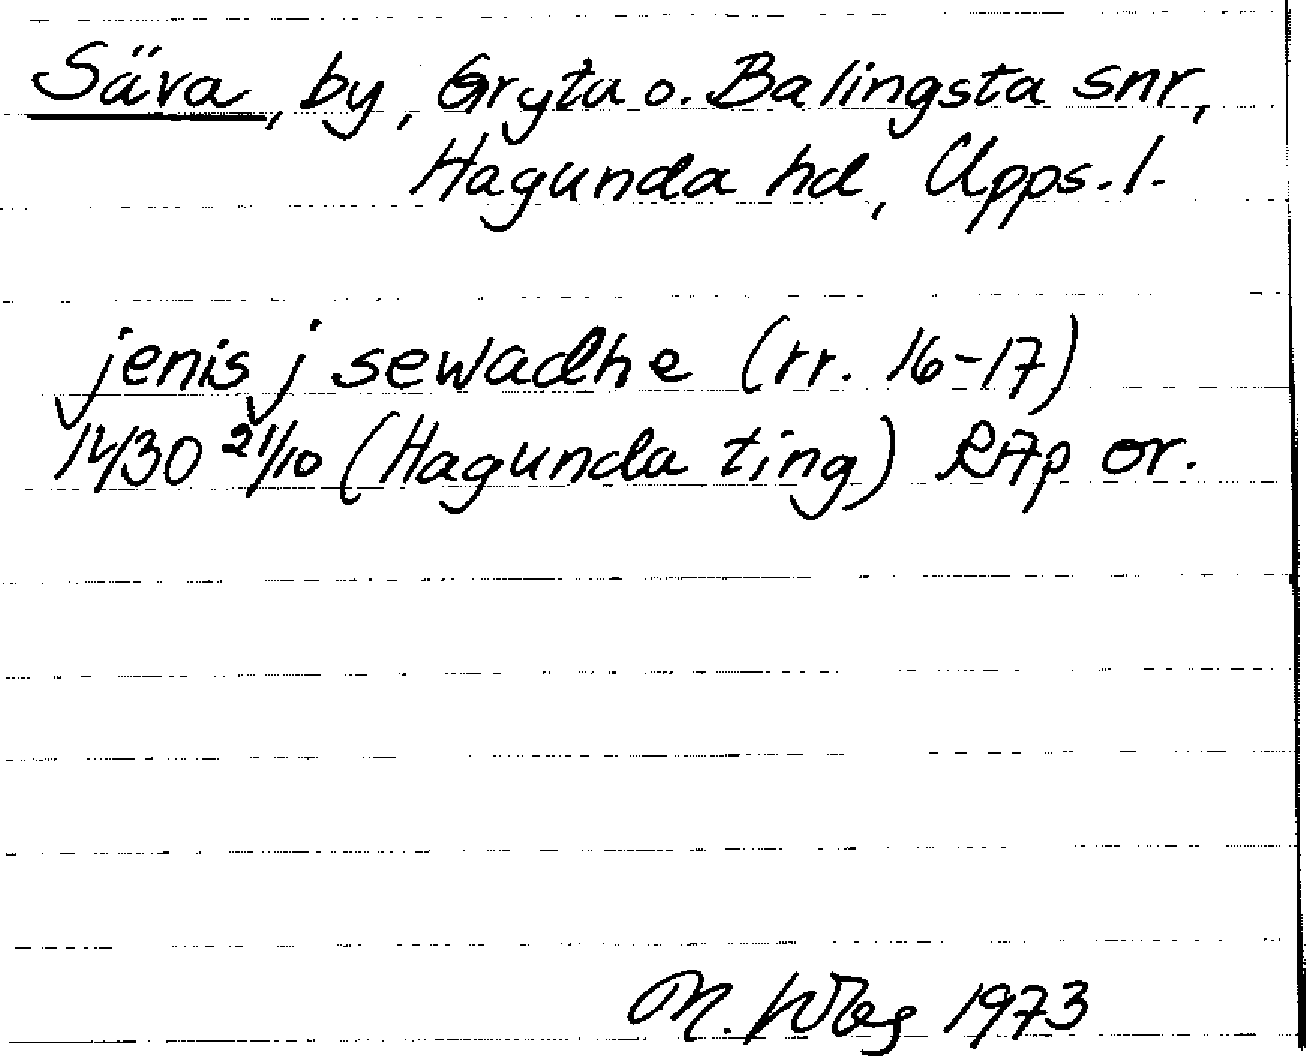 Säva, by, Gryta o. Balingsta snr,
Hagunda hd, Upps. l.
jenis j sewadhe (rr. 16-17)
1430 21/10 (Hagunda ting) RAp or.
M. 1973